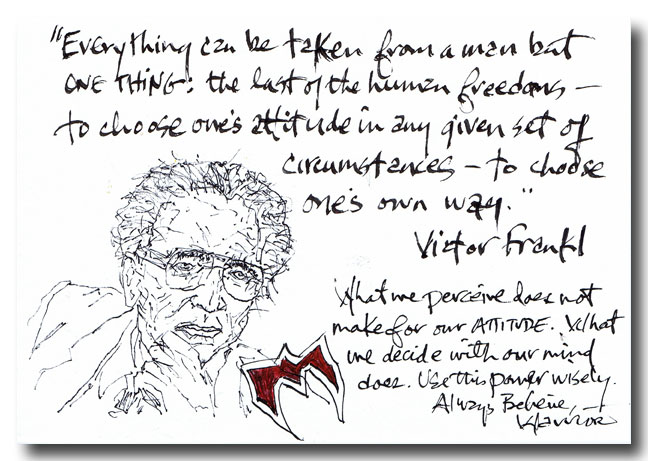 "Everything can be taken from a man but
ONE THING: the last of the human freedoms —
to choose one's attitude in any given set of
circumstances — to choose
one's own way."
Victor Frankl
What we perceive does not
make for our ATTITUDE. What
we decide with our mind
does. Use this power wisely.
Always Believe,
Warrior